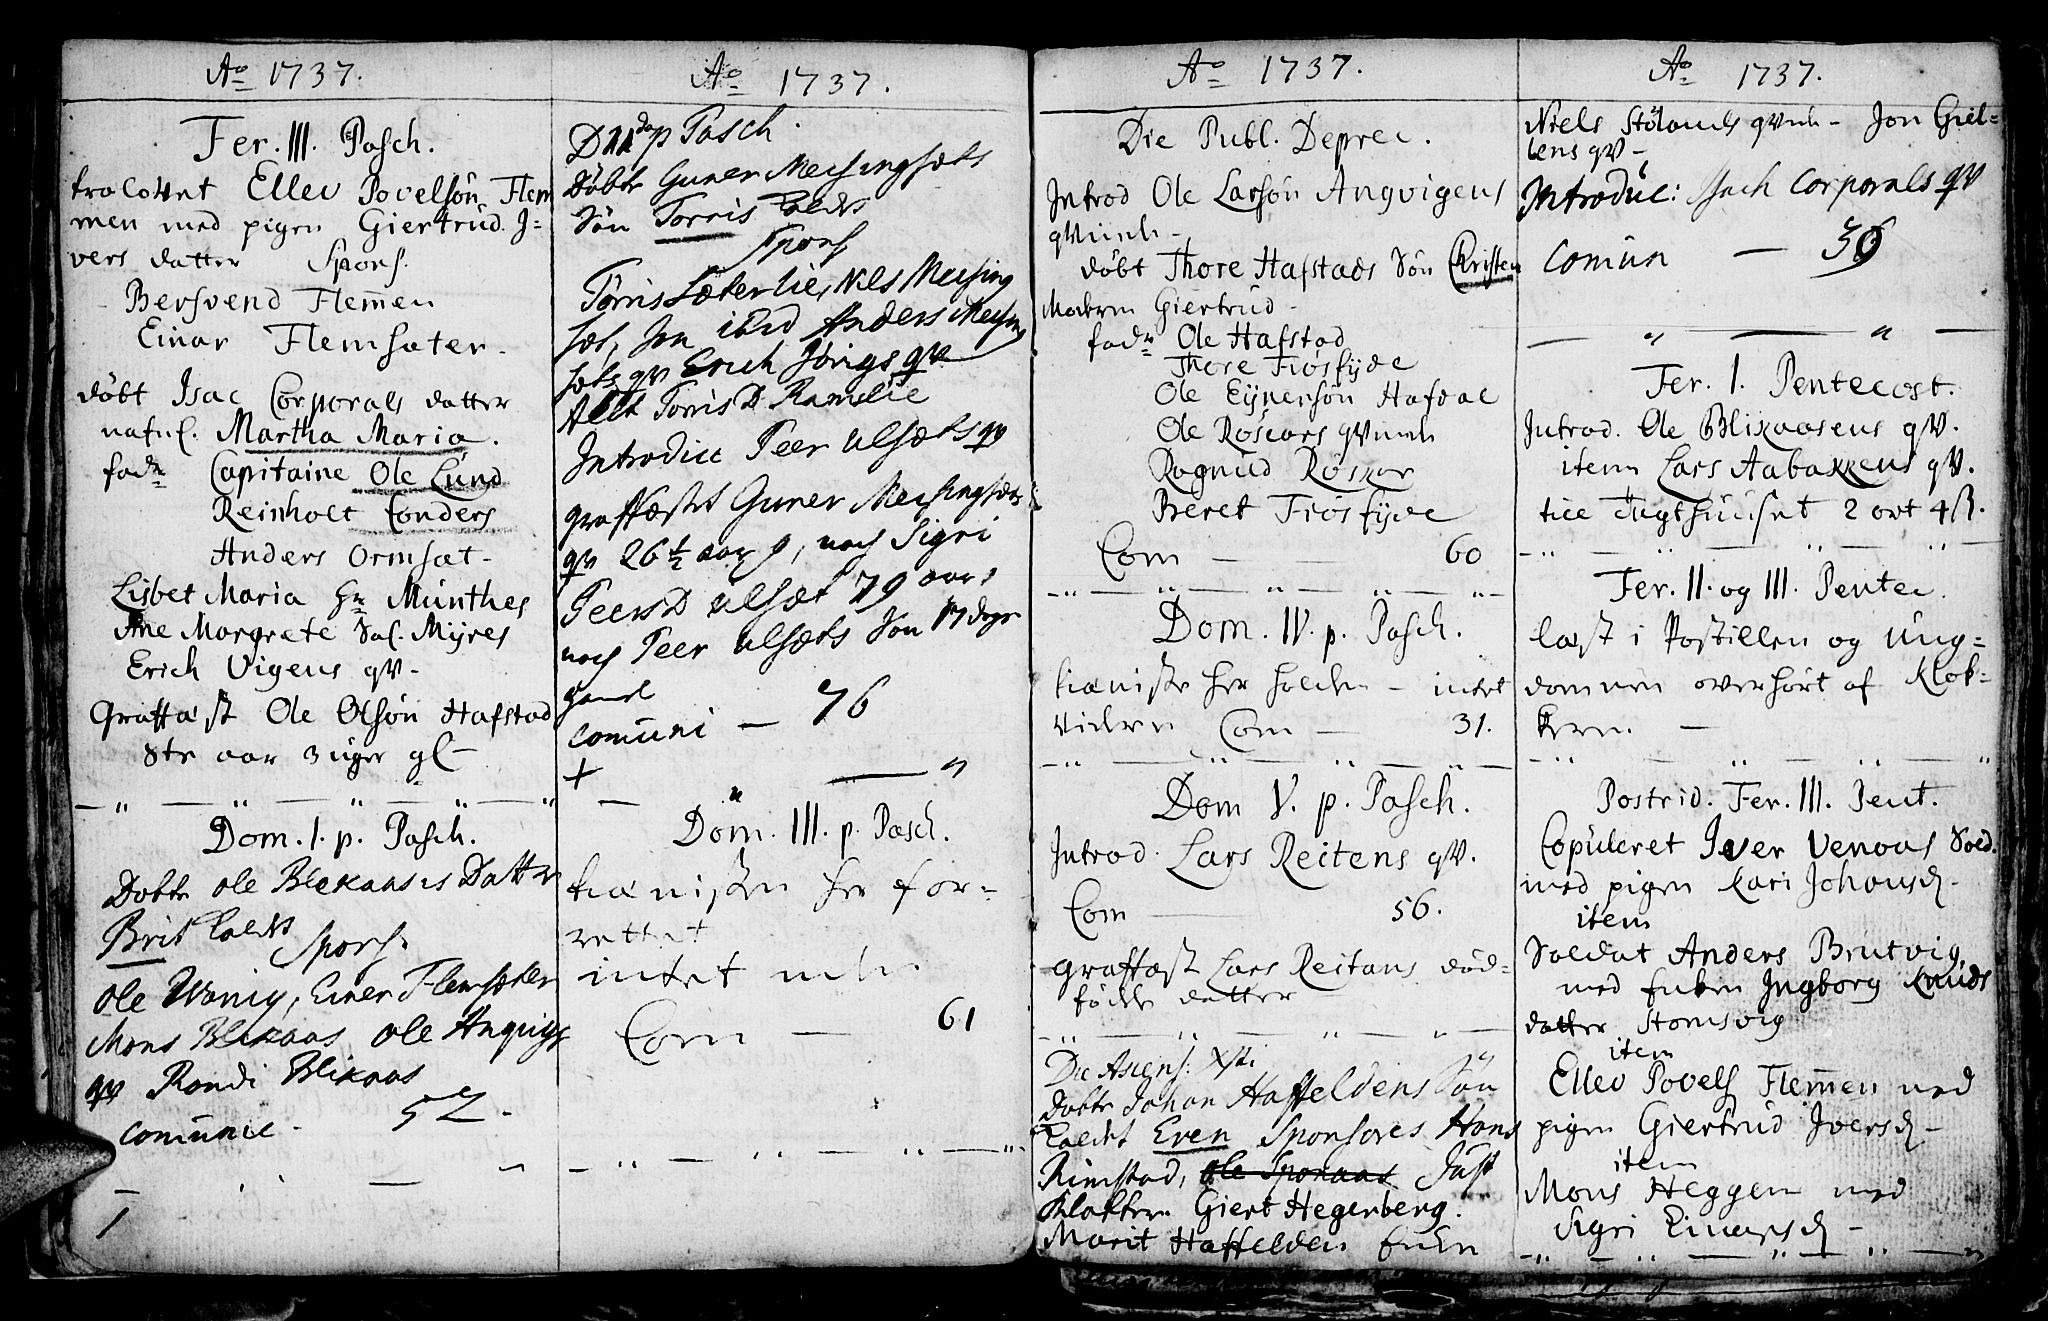 Ao 1737.
Fer. III. Pasch.
trolovet Ellev Povelsön Flem
men med pigen Giertrud J=
vers datter Spons.
Bersvend Flemen
Einar Flemsæter.
döbt Isac Corporals datter
nafnl. Martha Maria.
fadr Capitaine Ole Lund
Reinholt Conders
Anders Ormsæt-
Lisbet Maria Hr Munthes
Ane Margrete Sal. Myres
Erich Vigens qv-
Graffæst Ole Olsön Hafstad
8te aar 3 uger gl-
Dom. 1. p. Pasch.
Dobte ole Blekaases Datter
Brit kaldt
Spons.
Ole Wanig, Einer Flemsæter
Mons Blekaas ole Anquigs
qv Randi Blikaas
comunic- 52-
1
Ao 1737.
D II da p Pasch.
Döbte Guner Meisingsets
Sön Torris kaldt
Spons
Torris Sæterlie, Nils Meising
set, Jon ibid Anders Meising
sets qv Erich Jörigs qv
Alet Torris D Ramslie
Introduc Peer ulsæts qv
graffæstet Guner Meisingsæts
qv 26½ aar g, noch Sigri
Peers D ulsæt 79 aar,
noch Peer ulsæts Sön 17 dage
gamel
comuni — 76
+
Dom. III. p. Pasch.
tienisten her for-
rettet
intet
Com — 61
Ao 1737.
Die Publ. Deprec.
Introd Ole Larsön Angvigens
qvinde-
döbt Thore Hafstads Sön Christen
Modren Giertrud-
fadr Ole Hafstad
Thore Fiösfyde
Ole Eynersön Hafdal
Ole Röscars qvinde
Rognild Röskar
Beret Fiösfyde
Com — 60
Dom. IV. p. Pasch.
tieniste her holden - intet
videre Com — 31.
Dom V. p. Pasch.
Introd. Lars Reitens qv.
Com — 56.
graffæst Lars Reitans död-
födde datter
Die Ascens: Xsti
Dobte Johan Haffeldens Sön
kaldet Even Sponsores Hans
Rimstad, ole Sponaas Just
Klokker Giert Hegerberg.
Marit Haffelden Enken
Ao 1737.
Niels Stölands qvinde- Jon Giel=
lens qv-
Introduc: Isach Corporals qv
Comun — 36
Fer. 1. Pentecost.
Introd. Ole Blikaasens qv.
item Lars Aabakkens qv.
till Tugthuuset 2 ort 4 ß.
Fer. II. og III. Pentec.
læst i Postillen og Ung=
dommen overhört af Klok=
keren.
Postrid. Fer. III. Pent.
Copuleret Iver Venaas Sold.
med pigen Kari Johansd-
item
Soldat Anders Brutvig
med Enken Ingborg Knuds
datter Stomsvig
item
Ellev Povels Flemen med
pigen Giertrud Iversd-
item
Mons Heggem med
Sigri Einarsd-